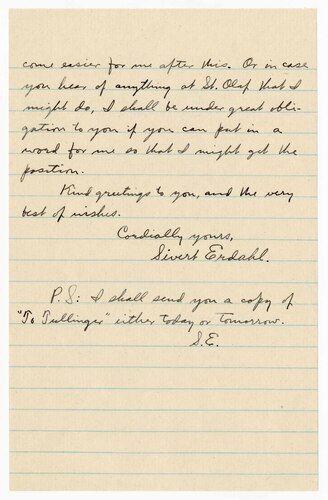 come easier for me after this. Or in case
you hear of anything at St. Olaf that I
might do, I shall be under great obli-
gation to you if you can put in a
word for me so that I might get the
position.
Kind greetings to you, and the very
best of wishes.
Cordially yours,
Sivert Erdahl.
P.S: I shall send you a copy of
"To Tullinger" either today or tomorrow.
S.E.